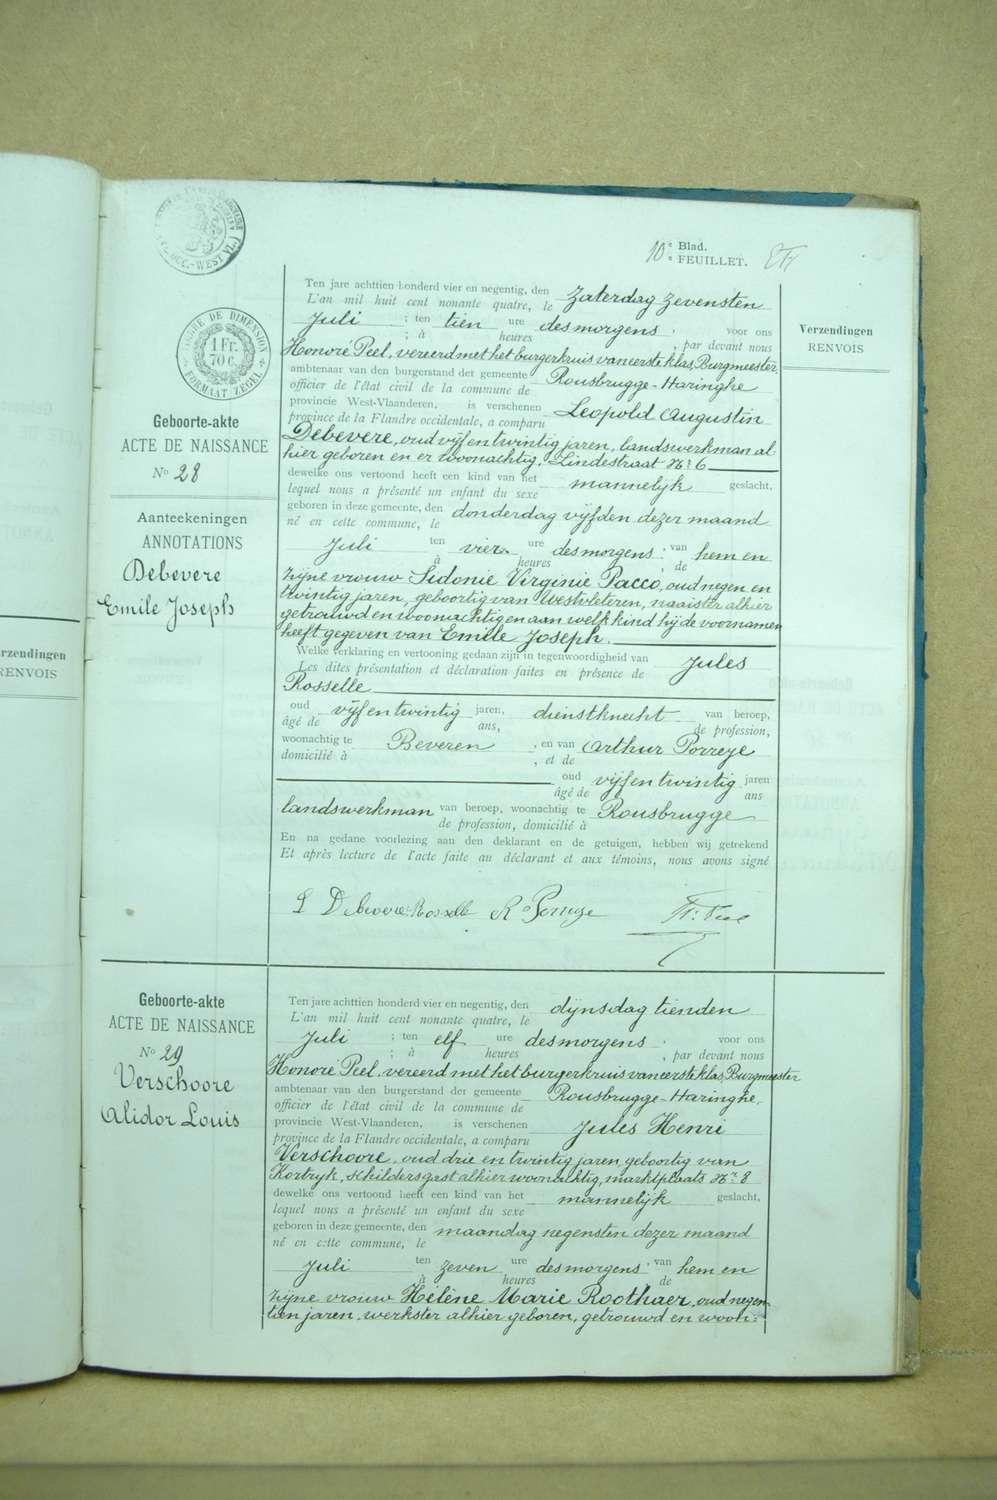 10e Blad.
FEUILLET.
TIMBRE DE DIMENSION
1 Fr.
70 c.
FORMAAT ZEGEL
Geboorte-akte
ACTE DE NAISSANCE
No 28
Aanteekeningen
ANNOTATIONS
Debevere
Emile Joseph
Verzendingen
RENVOIS
Ten jare achttien honderd vier en negentig, den
L'an mil huit cent nonante quatre, le
Zaterdag zevensten
Juli ; ten tien ure des morgens, voor ons
; à heures , par devant nous
Honoré Peel, vereerd met het burgerkruis van eerste klas, Burgmeester
ambtenaar van den burgerstand der gemeente Rousbrugge-Haringhe
officier de l'état civil de la commune de
provincie West-Vlaanderen, is verschenen Leopold Augustin
province de la Flandre occidentale, a comparu
Debevere, oud vijf en twintig jaren, landswerkman al
hier geboren en er woonachtig, Lindestraat No 6
dewelke ons vertoond heeft een kind van het mannelijk geslacht,
lequel nous a présenté un enfant du sexe
geboren in deze gemeente, den donderdag vijfden dezer maand
né en cette commune, le
Juli ten vier ure des morgens : van hem en
à heures ; de
zijne vrouw Sidonie Virginie Pacco, oud negen en
twintig jaren, geboortig van Westvleteren, naaister alhier
getrouwd en woonachtig en aan welk kind hij de voornamen
heeft gegeven van Emile Joseph.
Welke verklaring en vertooning gedaan zijn in tegenwoordigheid van Jules
Les dites présentation et déclaration faites en présence de
Rosselle
oud vijf en twintig jaren, dienstknecht van beroep,
âgé de ans, de profession,
woonachtig te Beveren , en van Arthur Porreye
domicilié à , et de
oud vijf en twintig jaren
âgé de ans
landswerkman van beroep, woonachtig te Rousbrugge
de profession, domicilié à
En na gedane voorlezing aan den deklarant en de getuigen, hebben wij getrekend
Et après lecture de l'acte faite au déclarant et aux témoins, nous avons signé
L Debevere Rosselle
Geboorte-akte
ACTE DE NAISSANCE
No 29
Verschoore
Alidor Louis
Ten jare achttien honderd vier en negentig, den dijnsdag tienden
L'an mil huit cent nonante quatre, le
Juli ; ten elf ure des morgens, voor ons
; à heures , par devant nous
Honoré Peel, vereerd met het burgerkruis van eerste klas, Burgmeester
ambtenaar van den burgerstand der gemeente Rousbrugge-Haringhe,
officier de l'état civil de la commune de
provincie West-Vlaanderen, is verschenen Jules Henri
province de la Flandre occidentale, a comparu
Verschoore, oud drie en twintig jaren geboortig van
Kortryk, schildersgast alhier woonachtig, marktplaats No 8
dewelke ons vertoond heeft een kind van het mannelijk geslacht,
lequel nous a présenté un enfant du sexe
geboren in deze gemeente, den maandag negensten dezer maand
né en cette commune, le
Juli ten zeven ure des morgens, van hem en
à heures de
zijne vrouw Hélène Marie Roothaer, oud negen-
tien jaren, werkster alhier geboren, getrouwd en woon:
rzendingen
RENVOIS